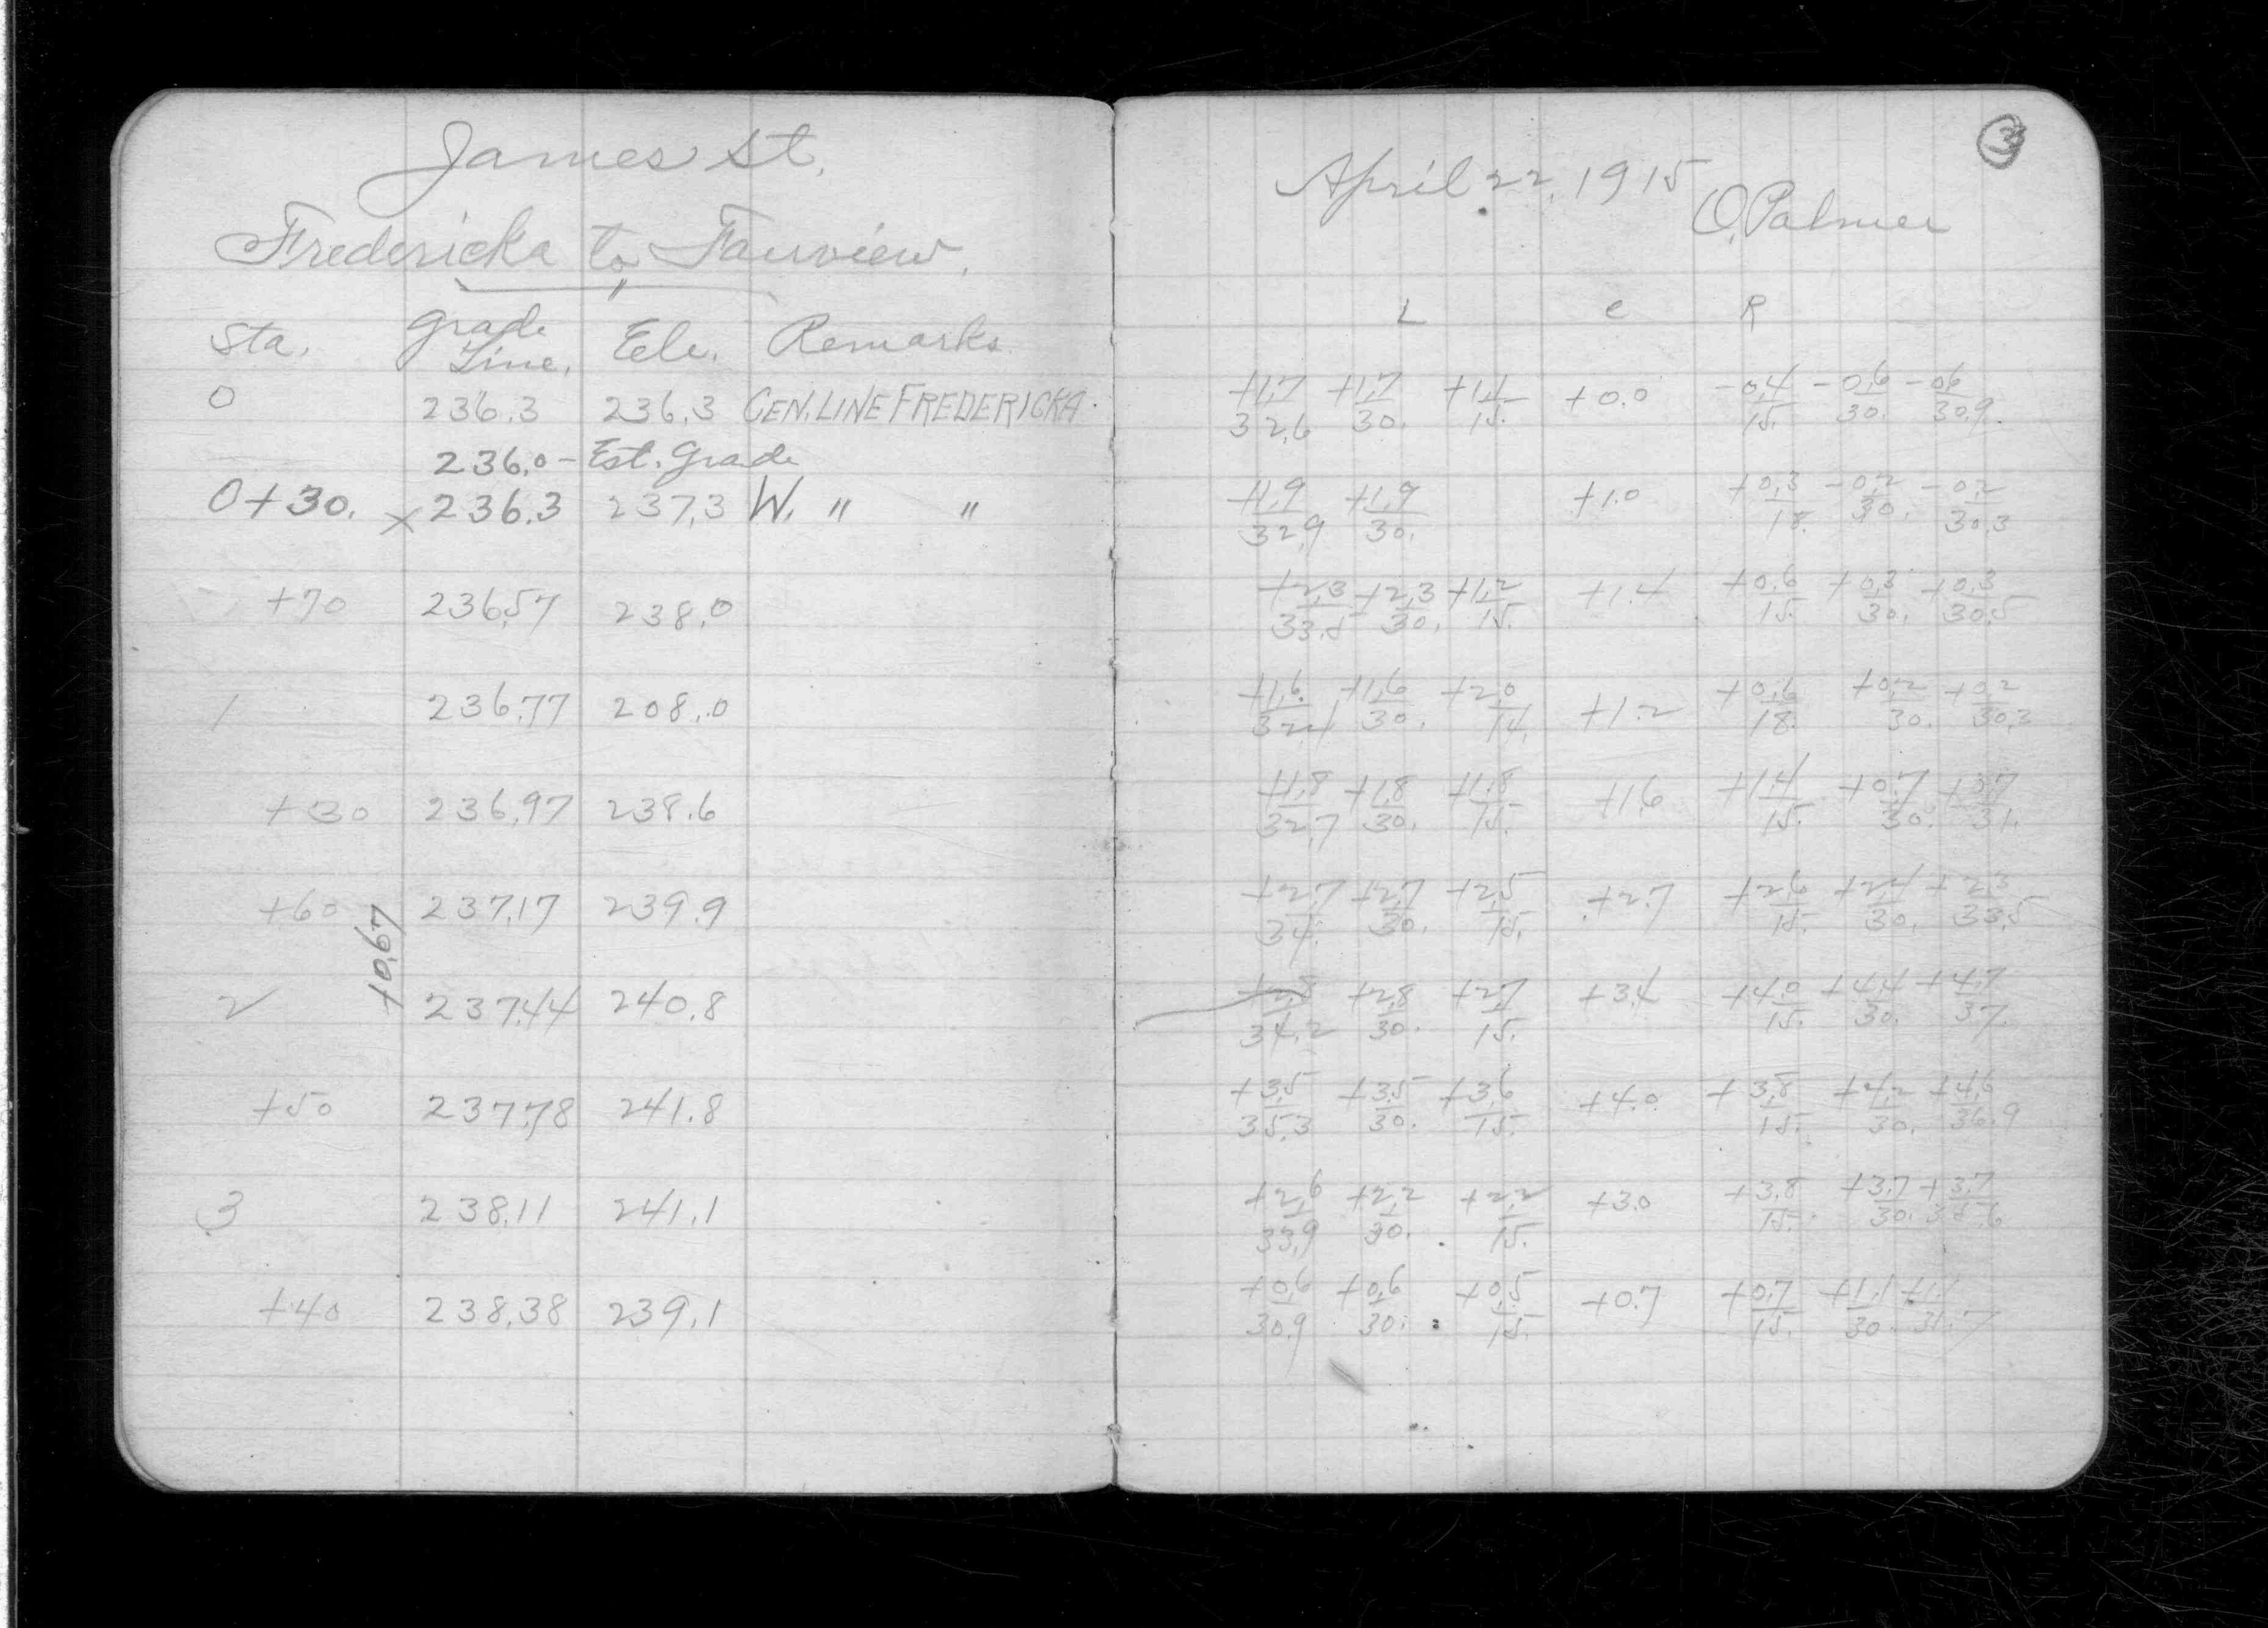 James St.
Fredericka to Fairview.
Sta. Grade Line. Ele. Remarks.
0 236.3 236.3 CEN. LINE FREDERICKA.
236.0 - Est. Grade
0+30. x 236.3 237.3 W. " "
+70 236.57 238.0
1 236.77 208.0
+30 236.97 238.6
+60 237.17 239.9
+0.67
2 237.44 240.8
+50 237.78 241.8
3 238.11 241.1
+40 238.38 239.1
3
April 22, 1915
O. Palmer
L C R
+1.7 +1.7 +1.1 +0.0 -0.4 -0.6 -0.6
32.6 30. 15. 15. 30. 30.9
+1.9 +1.9 +1.0 +0.3 -0.2 -0.2
32.9 30. 18. 30. 30.3
+2.3 +2.3 +1.2 +1.4 +0.6 +0.3 +0.3
33.5 30. 15. 15. 30. 30.5
+1.6 +1.6 +2.0 +1.2 +0.6 +0.2 +0.2
32.4 30. 14. 18. 30. 30.3
+1.8 +1.8 +1.8 +1.6 +1.4 +0.7
32.7 30. 15. 15. 30. 31.
+2.7 +2.7 +2.5 +2.7 +2.6 +2.4 +2.3
34. 30. 15. 15. 30. 33.5
+2.8 +2.8 +2.7 +3.4 +4.0 +4.4 +4.7
34.2 30. 15. 15. 30. 37.
+3.5 +3.5 +3.6 +4.0 +3.8 +4.2 +4.6
35.3 30. 15. 15. 30. 36.9
+2.6 +2.2 +2.2 +3.0 +3.8 +3.7 +3.7
33.9 30. 15. 15. 30. 35.6
+0.6 +0.6 +0.5 +0.7 +0.7 +1.1 +1.1
30.9 30. 15. 15. 30. 31.7